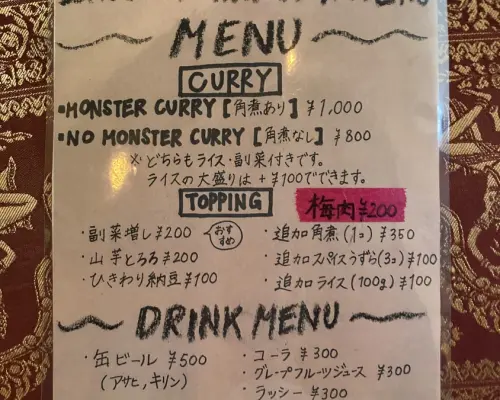 MENU
CURRY
・MONSTER CURRY [角煮あり] ¥1,000
・NO MONSTER CURRY [角煮なし] ¥800
※どちらもライス・副菜付きです。
ライスの大盛りは+¥100でできます。
TOPPING
梅肉¥200
・副菜増し¥200
おすすめ
・山芋とろろ¥200
・ひきわり納豆¥100
・追加角煮(1コ)¥350
・追加スパイスうずら(3コ)¥100
・追加ライス(100g)¥100
DRINK MENU
・缶ビール ¥500
(アサヒ,キリン)
・コーラ ¥300
・グレープフルーツジュース ¥300
・ラッシー ¥300